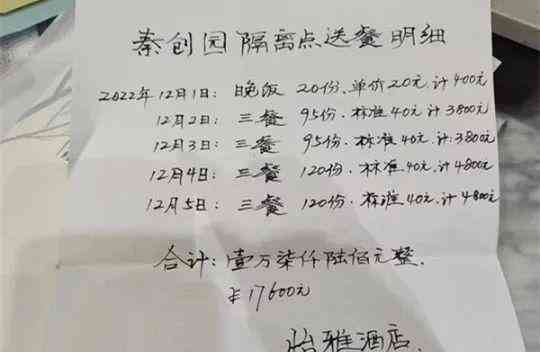 秦创园隔离点送餐明细
2022年12月1日: 晚饭 20份、单价20元.计400元
12月2日: 三餐 95份、标准40元.计3800元
12月3日: 三餐 95份、标准40元.计:3800元
12月4日: 三餐 120份、标准40元.计4800元
12月5日: 三餐 120份、标准40元.计4800元
合计:壹万柒仟陆佰元整.
¥17600元
怡雅酒店.